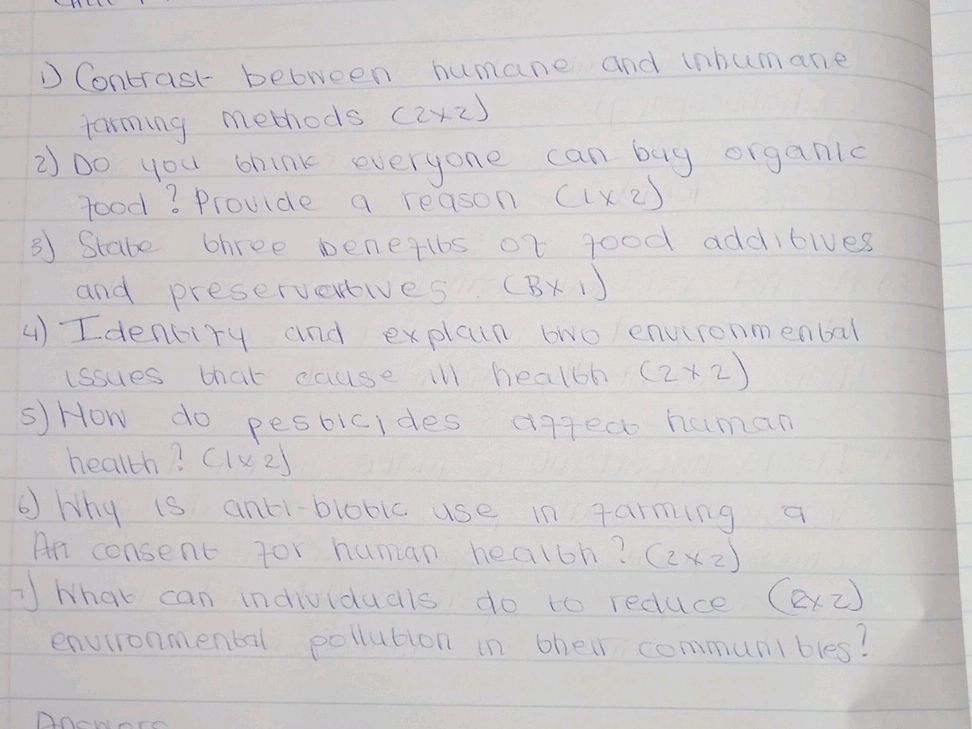 1) Contrast between humane and inhumane
farming methods (2x2)
2) Do you think everyone can buy organic
food? Provide a reason (1x2)
3) State three benefits of food additives
and preservatives. (3x1)
4) Identify and explain two environmental
issues that cause ill health (2x2)
5) How do pesticides affect human
health? (1x2)
6) Why is anti-biotic use in farming a
An consent for human health? (2x2)
7) What can individuals do to reduce (2x2)
environmental pollution in their communities?
Answers